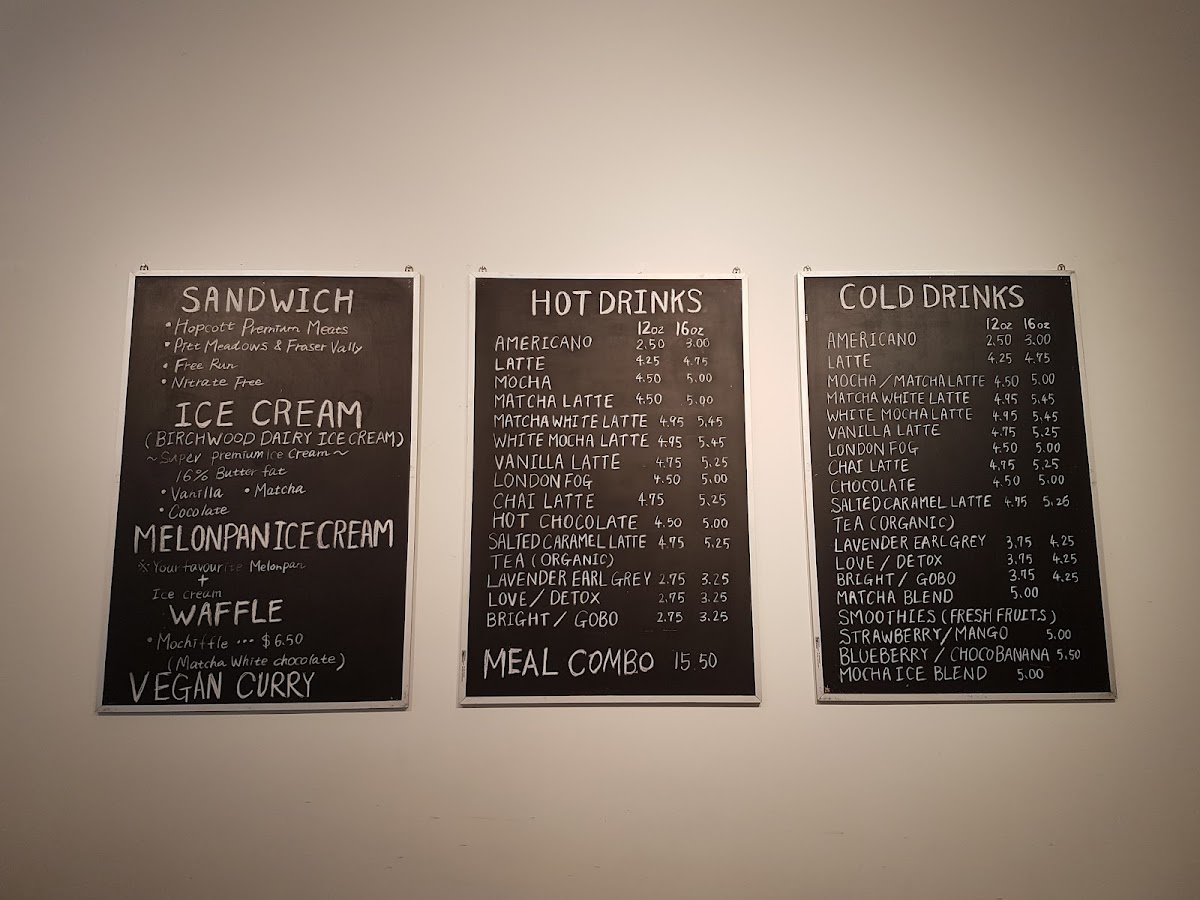 SANDWICH
• Hopcott Premium Meats
• Pitt Meadows & Fraser Vally
• Free Run
• Nitrate Free
ICE CREAM
(BIRCHWOOD DAIRY ICE CREAM)
~Super premium Ice Cream~
16% Butter fat
• Vanilla • Matcha
• Cocolate
MELONPAN ICE CREAM
※ Your favourite Melonpan
+
Ice cream
WAFFLE
• Mochiffle ... $6.50
(Matcha White chocolate)
VEGAN CURRY
HOT DRINKS
12oz 16oz
AMERICANO 2.50 3.00
LATTE 4.25 4.75
MOCHA 4.50 5.00
MATCHA LATTE 4.50 5.00
MATCHA WHITE LATTE 4.95 5.45
WHITE MOCHA LATTE 4.95 5.45
VANILLA LATTE 4.75 5.25
LONDON FOG 4.50 5.00
CHAI LATTE 4.75 5.25
HOT CHOCOLATE 4.50 5.00
SALTED CARAMEL LATTE 4.75 5.25
TEA (ORGANIC)
LAVENDER EARL GREY 2.75 3.25
LOVE / DETOX 2.75 3.25
BRIGHT / GOBO 2.75 3.25
MEAL COMBO 15.50
COLD DRINKS
12oz 16oz
AMERICANO 2.50 3.00
LATTE 4.25 4.75
MOCHA / MATCHA LATTE 4.50 5.00
MATCHA WHITE LATTE 4.95 5.45
WHITE MOCHA LATTE 4.95 5.45
VANILLA LATTE 4.75 5.25
LONDON FOG 4.50 5.00
CHAI LATTE 4.75 5.25
CHOCOLATE 4.50 5.00
SALTED CARAMEL LATTE 4.75 5.26
TEA (ORGANIC)
LAVENDER EARL GREY 3.75 4.25
LOVE / DETOX 3.75 4.25
BRIGHT / GOBO 3.75 4.25
MATCHA BLEND 5.00
SMOOTHIES (FRESH FRUITS)
STRAWBERRY / MANGO 5.00
BLUEBERRY / CHOCO BANANA 5.50
MOCHA ICE BLEND 5.00